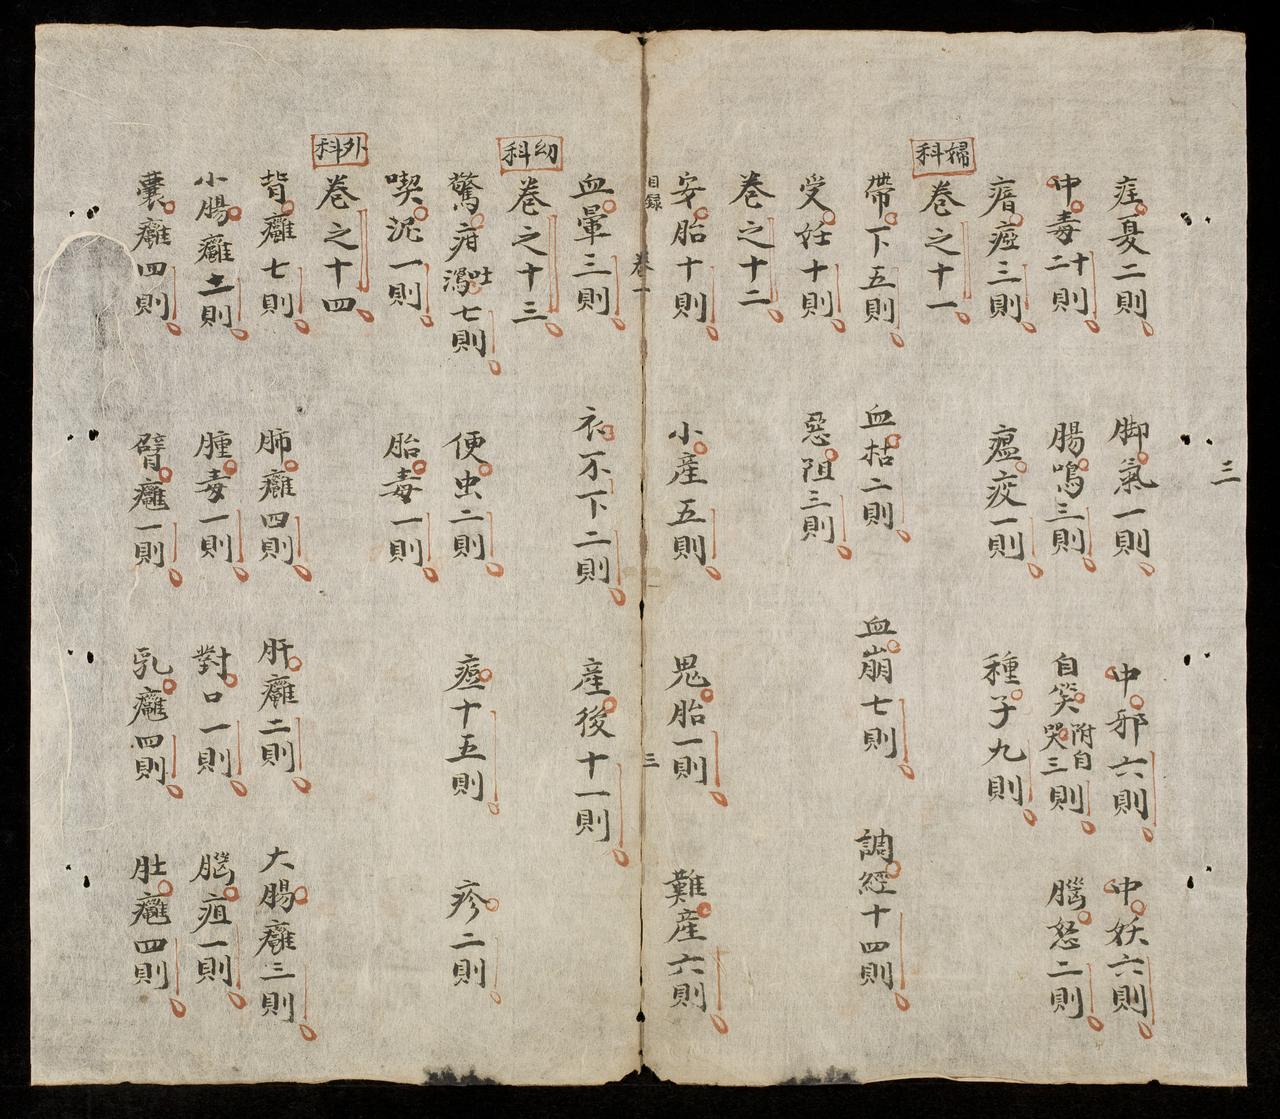 三
疰夏二則 脚氣一則 中邪六則 中妖六則
中毒十二則 腸鳴三則 自笑附自哭三則 腦怒二則
瘖瘂三則 瘟疫一則 種子九則
婦科 卷之十一
帶下五則 血枯二則 血崩七則 調經十四則
受妊十則 惡阻三則
卷之十二
安胎十則 小產五則 鬼胎一則 難產六則
目録 卷一 三
血暈三則 衣不下二則 產後十一則
幼科 卷之十三
驚疳吐瀉七則 便虫二則 痘十五則 疹二則
喫泥一則 胎毒一則
外科 卷之十四
背癰七則 肺癰四則 肝癰二則 大腸癰三則
小腸癰則 腫毒一則 對口一則 腦疽一則
囊癰四則 臂癰一則 乳癰四則 肚癰四則